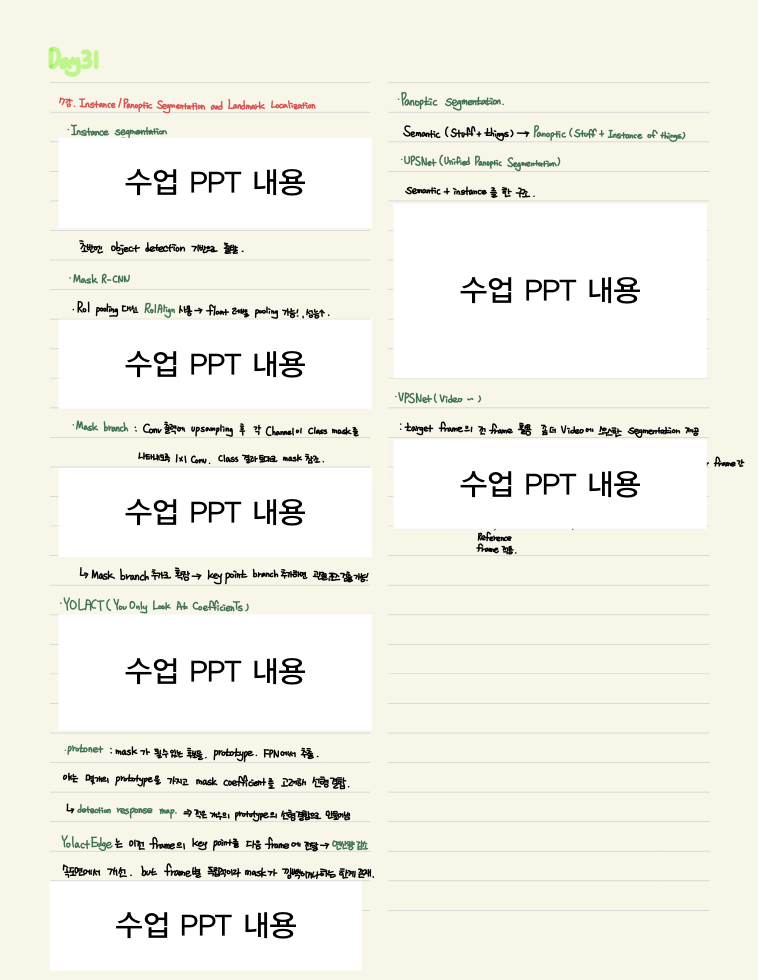 Day31
7강. Instance/Panoptic Segmentation and Landmark Localization
·Instance segmentation
수업 PPT 내용
초반엔 object detection 기반으로 출발.
·Mask R-CNN
·RoI pooling 대신 RoIAlign 사용→ float 레벨 pooling 가능!, 성능↑.
수업 PPT 내용
·Mask branch : Conv 출력에 upsampling 후 각 Channel이 class mask를
나타내도록 1x1 Conv. Class 결과 토대로 mask 참조.
수업 PPT 내용
↳ Mask branch 추가로 확장→ key point branch 추가하면 검출 가능!
·YOLACT(You Only Look At CoefficienTs)
수업 PPT 내용
·protonet : mask 가 될수있는 후보들. prototype. FPN에서 추출.
이는 몇개의 prototype을 가지고 mask coefficient를 고려해 선형결합.
↳ detection response map. ⇒ 적은 개수의 prototype의 선형결합으로 만들어냄
YolactEdge는 이전 frame의 key point를 다음 frame에 전달→ 연산량 감소
속도면에서 개선. but frame별 독립적이라 mask가 깜빡이거나하는 한계 존재.
수업 PPT 내용
·Panoptic Segmentation.
Semantic (Stuff + things) → Panoptic (Stuff + Instance of things)
·UPSNet (Unified Panoptic Segmentation)
Semantic + instance 를 한 구조.
수업 PPT 내용
·VPSNet (Video ~ )
: target frame의 전 frame 활용 좀더 Video에 스무스한 Segmentation 제공
frame 간
수업 PPT 내용
Reference
frame 검출.